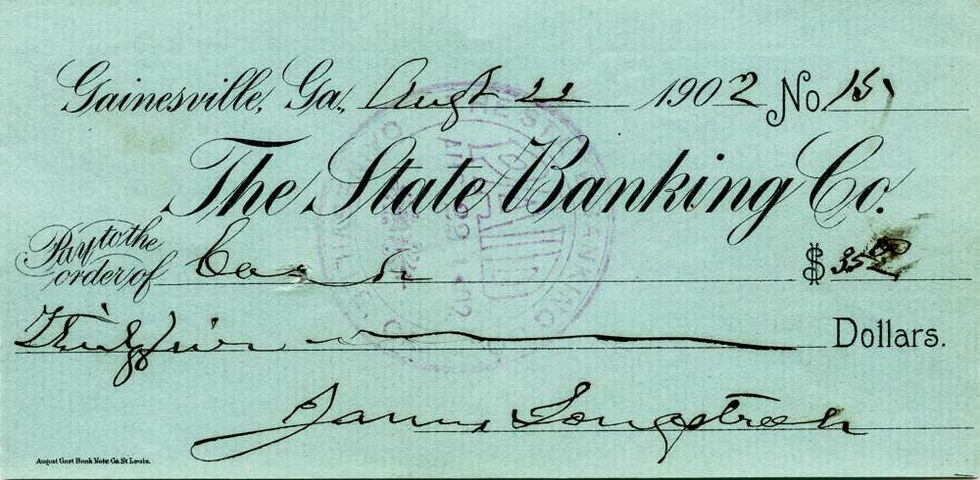 Gainesville, Ga., Augt 22 1902 No. 15
The State Banking Co.
Pay to the
order of Cash $ 35 00
Thirty five Dollars.
James Longstreet
August Gast Bank Note Co. St Louis.